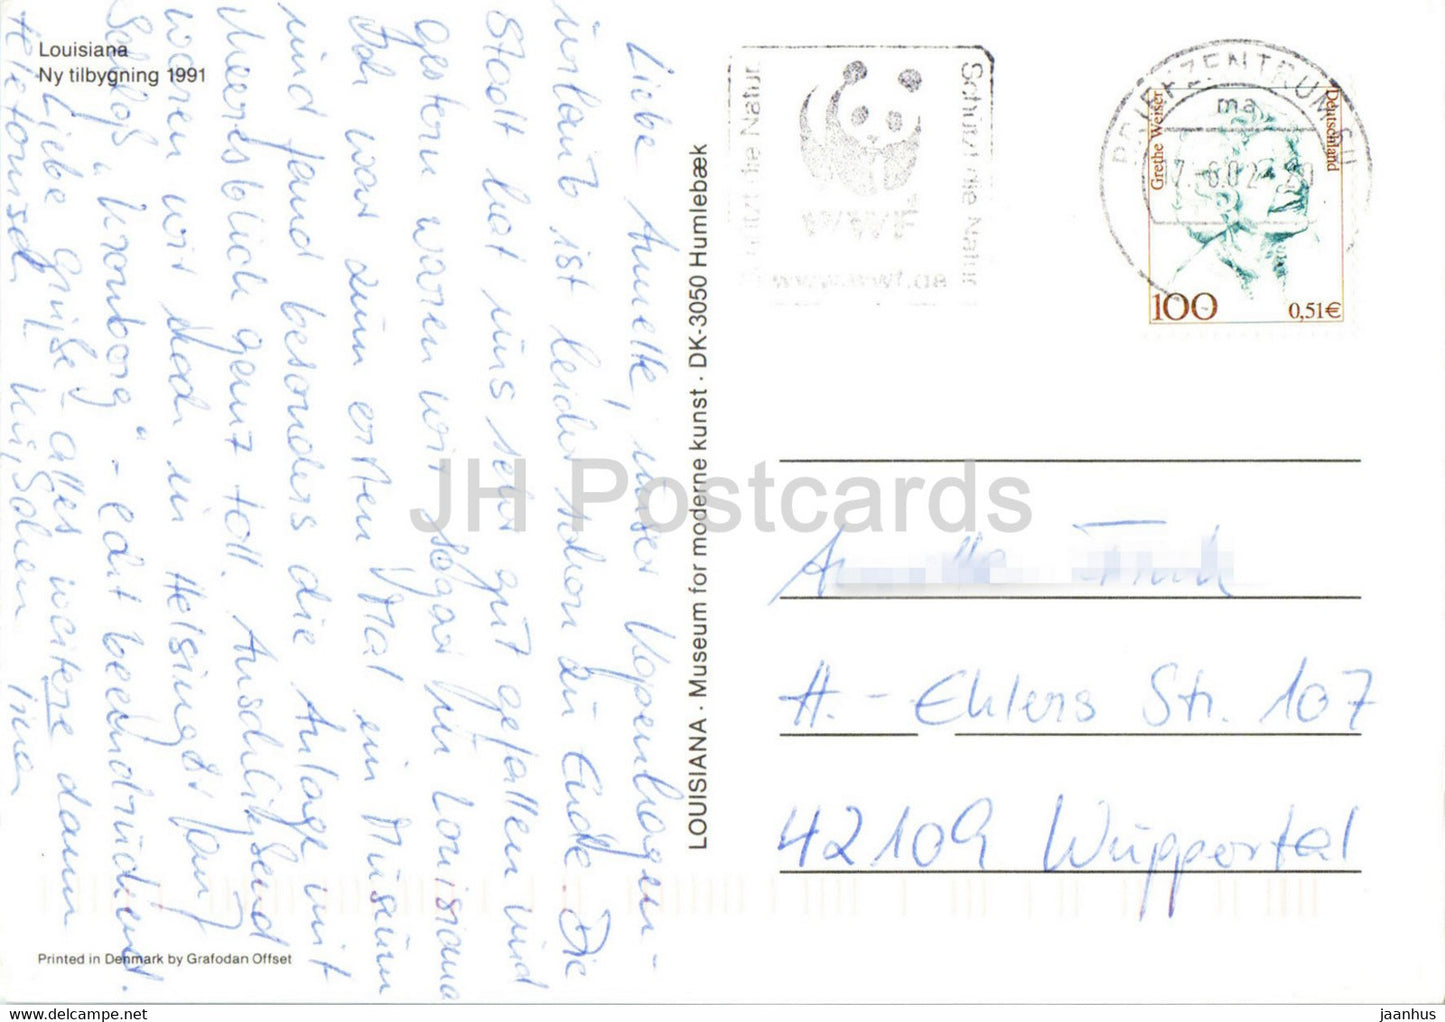 Louisiana
Ny tilbygning 1991
Liebe Annette, unser Kopenhagen-
urlaub ist leider schon zu Ende. Die
Stadt hat uns sehr gut gefallen und
gestern waren wir sogar in Louisiana
Ich war zum ersten Mal im Museum
und fand besonders die Anlage mit
Meeresblick ganz toll. Anschließend
waren wir noch in Helsingør
Schloß „Kronborg“ - echt beeindruckend.
Liebe Grüße - alles weitere dann
telefonisch
LOUISIANA · Museum for moderne kunst · DK-3050 Humlebæk
Schützt die Natur
Schützt die Natur
WWF
www.wwf.de
BRIEFZENTRUM
ma
Grethe Weiser
Deutschland
100
0,51€
A.-Ehlers Str. 107
42109 Wuppertal
Printed in Denmark by Grafodan Offset
JH Postcards
www.delcampe.net
jaanhus